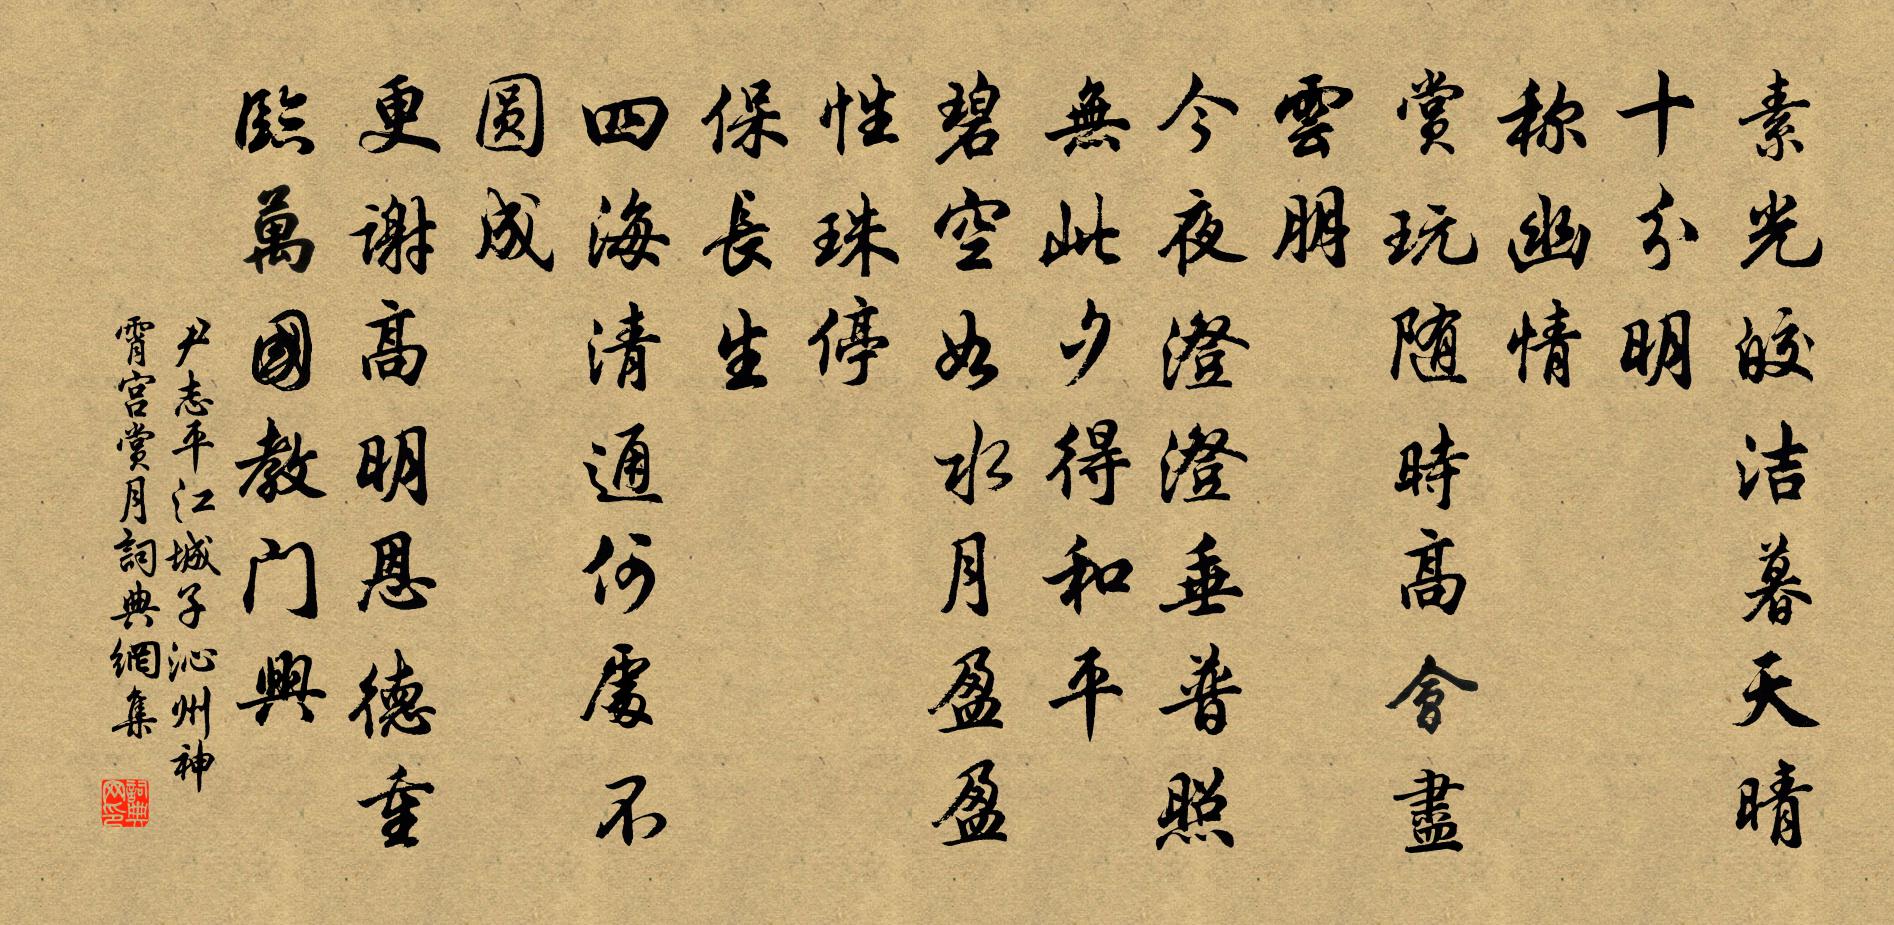 素光皎洁暮天晴
十分明
称幽情
赏玩随時高會盡
雲朋
今夜澄澄垂普照
無此夕得和平
碧空如水月盈盈
性珠停
保長生
四海清通何處不
圆成
更谢高明恩德重
臨萬國教门興
尹志平江城子沁州神
霄宫赏月詞典網集
詞典
网印